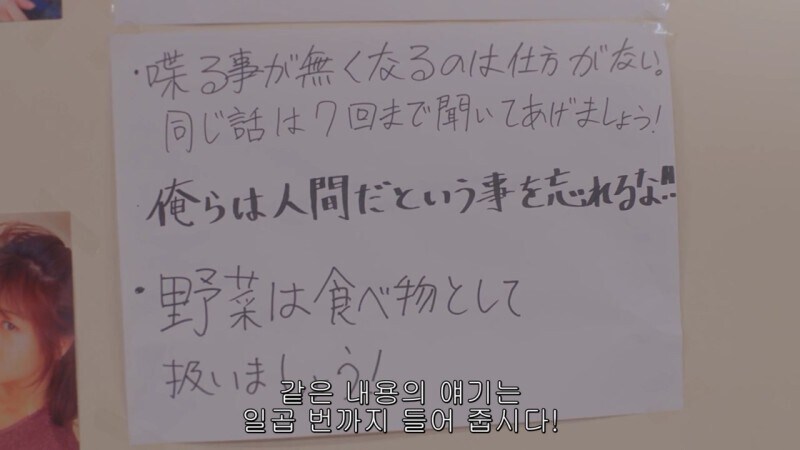 ・喋る事が無くなるのは仕方がない。
同じ話は7回まで聞いてあげましょう!
俺らは人間だという事を忘れるな!!
・野菜は食べ物として
扱いましょう!
같은 내용의 얘기는
일곱 번까지 들어 줍시다!